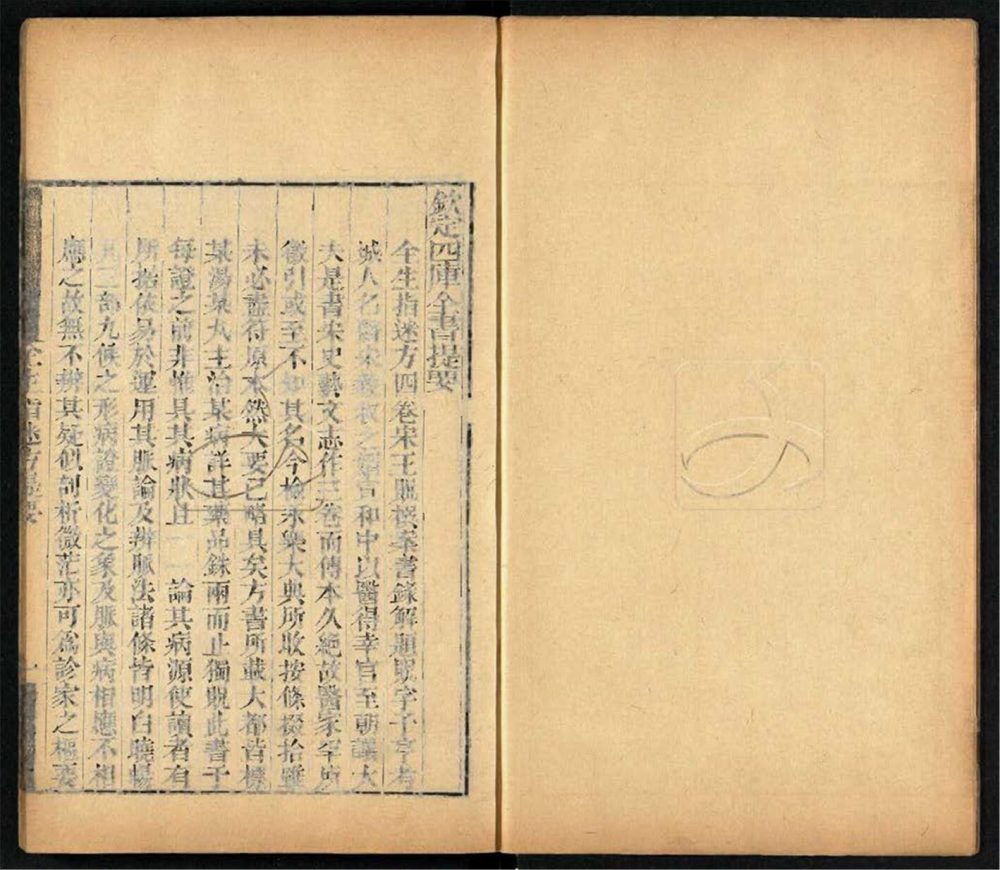 欽定四庫全書提要
全生指迷方四卷宋王貺撰案書錄解題貺字子亨考
城人名醫宋毅叔之壻宣和中以醫得幸官至朝議大
夫是書宋史藝文志作三卷而傳本久絕故醫家罕所
徵引或至不知其名今檢永樂大典所收按條掇拾雖
未必盡符原本然大要已略具矣方書所載大都皆標
某湯某丸主治某病詳其藥品銖兩而止獨貺此書于
每證之前非惟具其病狀且一一論其病源使讀者有
所据依易於運用其脈論及辨脈法諸條皆明白曉暢
凡三部九候之形病證變化之象及脈與病相應不相
應之故無不辨其疑似剖析微茫亦可為診家之樞要
全生指迷方提要
一